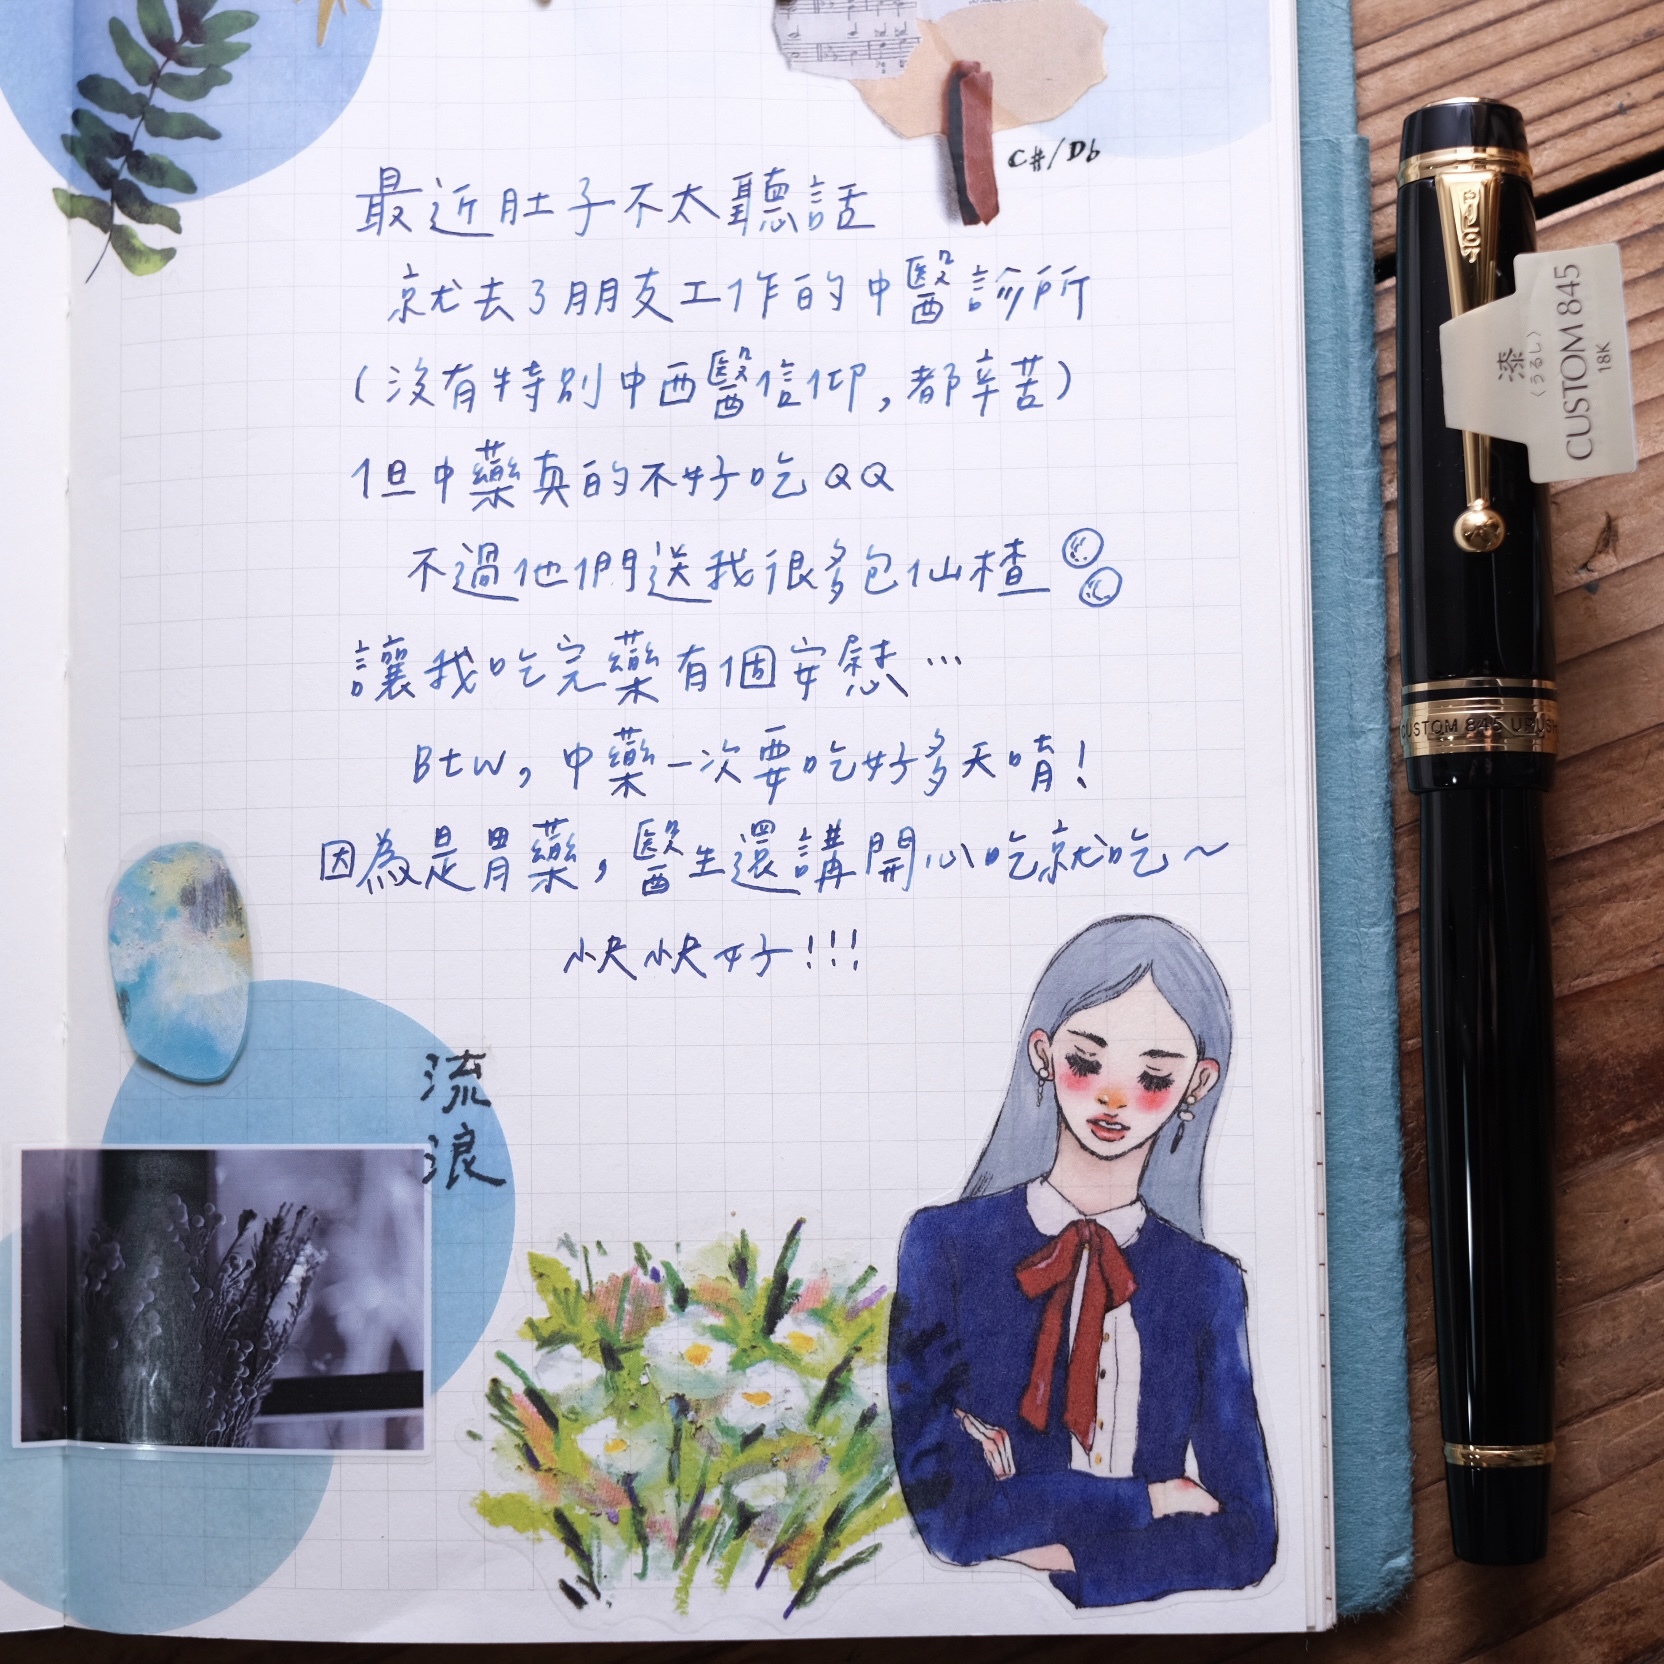 C#/Db
最近肚子不太聽話
就去了朋友工作的中醫診所
(沒有特別中西醫信仰,都辛苦)
但中藥真的不好吃QQ
不過他們送我很多包仙楂
讓我吃完藥有個安慰…
Btw,中藥一次要吃好多天唷!
因為是胃藥,醫生還講開心吃就吃~
快快好!!!
流
浪
漆
〈うるし〉
CUSTOM 845
18K
CUSTOM 845 URUSHI